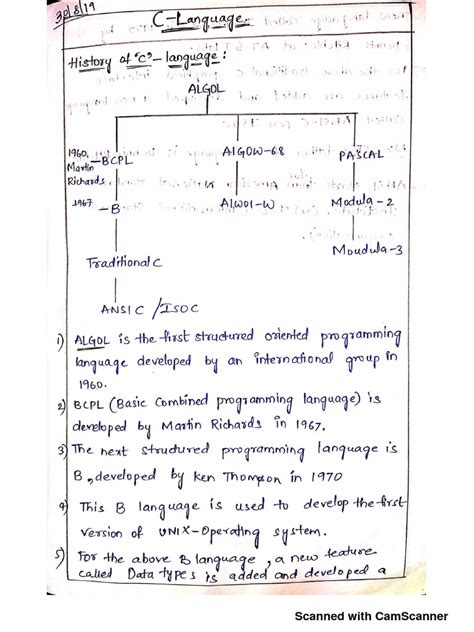 30/8/19
C-Language
History of "C"-language:
ALGOL
1960, Martin Richards - BCPL
AlGOW-68
PASCAL
1967 - B
AlWOl-W
Modula-2
Traditional C
Moudula-3
ANSI C / ISO C
1) ALGOL is the first structured oriented programming
language developed by an international group in
1960.
2) BCPL (Basic Combined programming language) is
developed by Martin Richards in 1967.
3) The next structured programming language is
B, developed by Ken Thompson in 1970
4) This B language is used to develop the first
version of UNIX-Operating system.
5) For the above B language, a new feature
called Data types is added and developed a
Scanned with CamScanner